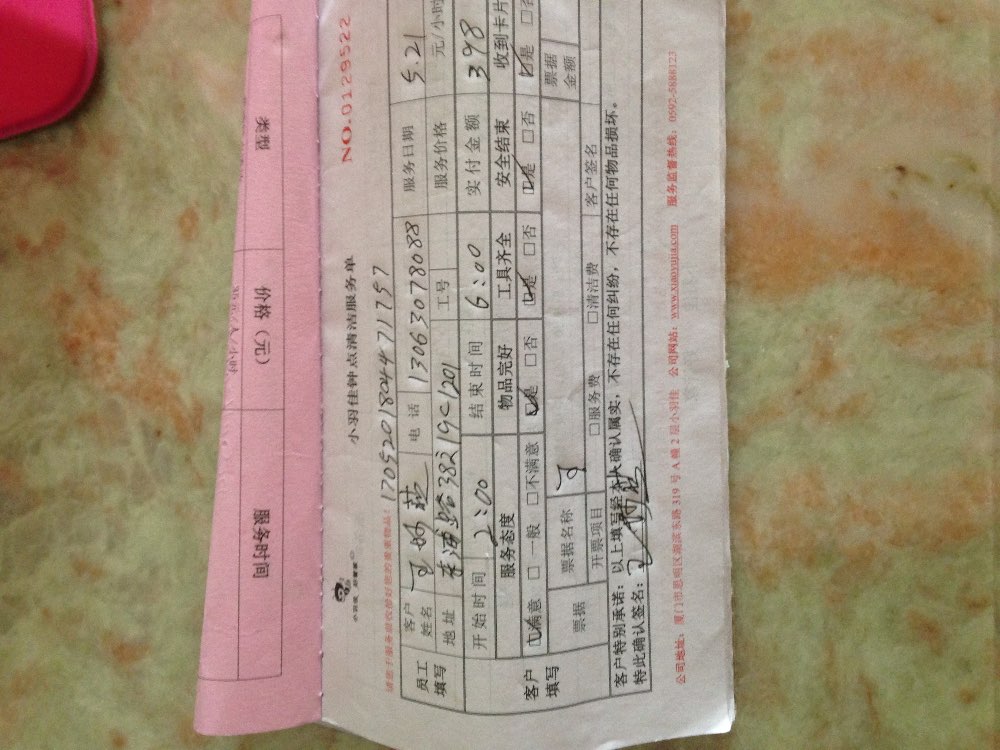 类型
价格（元）
服务时间
小羽佳钟点清洁服务单
NO.0129522
请您于服务前收捡好您的贵重物品！
1709520180447179
员工填写
客户姓名
电话 13063078088
服务日期 5.21
地址
工号
服务价格
元/小时
开始时间 2:00
结束时间 6:00
实付金额 398
客户填写
服务态度
物品完好
工具齐全
安全结束
收到卡片
□满意 □一般 □不满意
□是 □否
□是 □否
□是 □否
□是
票据
票据名称
票据金额
开票项目
□服务费 □清洁费
客户签名
客户特别承诺：以上填写经本人确认属实，不存在任何纠纷，不存在任何物品损坏。
特此确认签名：
公司地址：厦门市思明区湖滨东路 319 号 A 幢 2 层小羽佳 公司网站：www.xiaoyujia.com 服务监督热线：0592-5888123